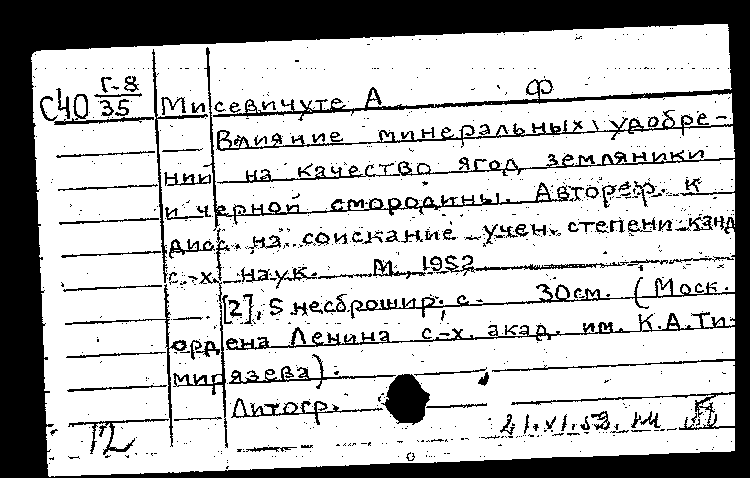 С40 Г-8/35 Мисевичуте, А Ф
Влияние минеральных удобре-
ний на качество ягод земляники
и черной смородины. Автореф. к
дисс. на соискание учен. степени канд
с.-х. наук. М., 1952
[2], 5 несброшир. с. 30см. (Моск.
ордена Ленина с.-х. акад. им. К.А.Ти-
мирязева).
Литогр.
12 21.XI.52.